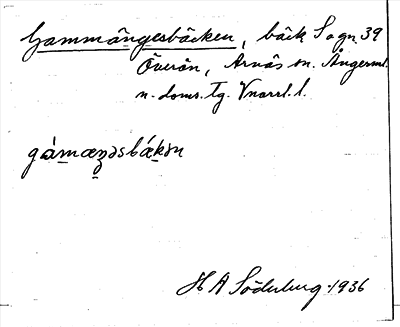 Gammängesbäcken, bäck S ogn. 39
Överön, Arnäs sn. Ångerml.
n. doms. Tg.
gàmæŋəsbǽkən
H A Söderberg 1936